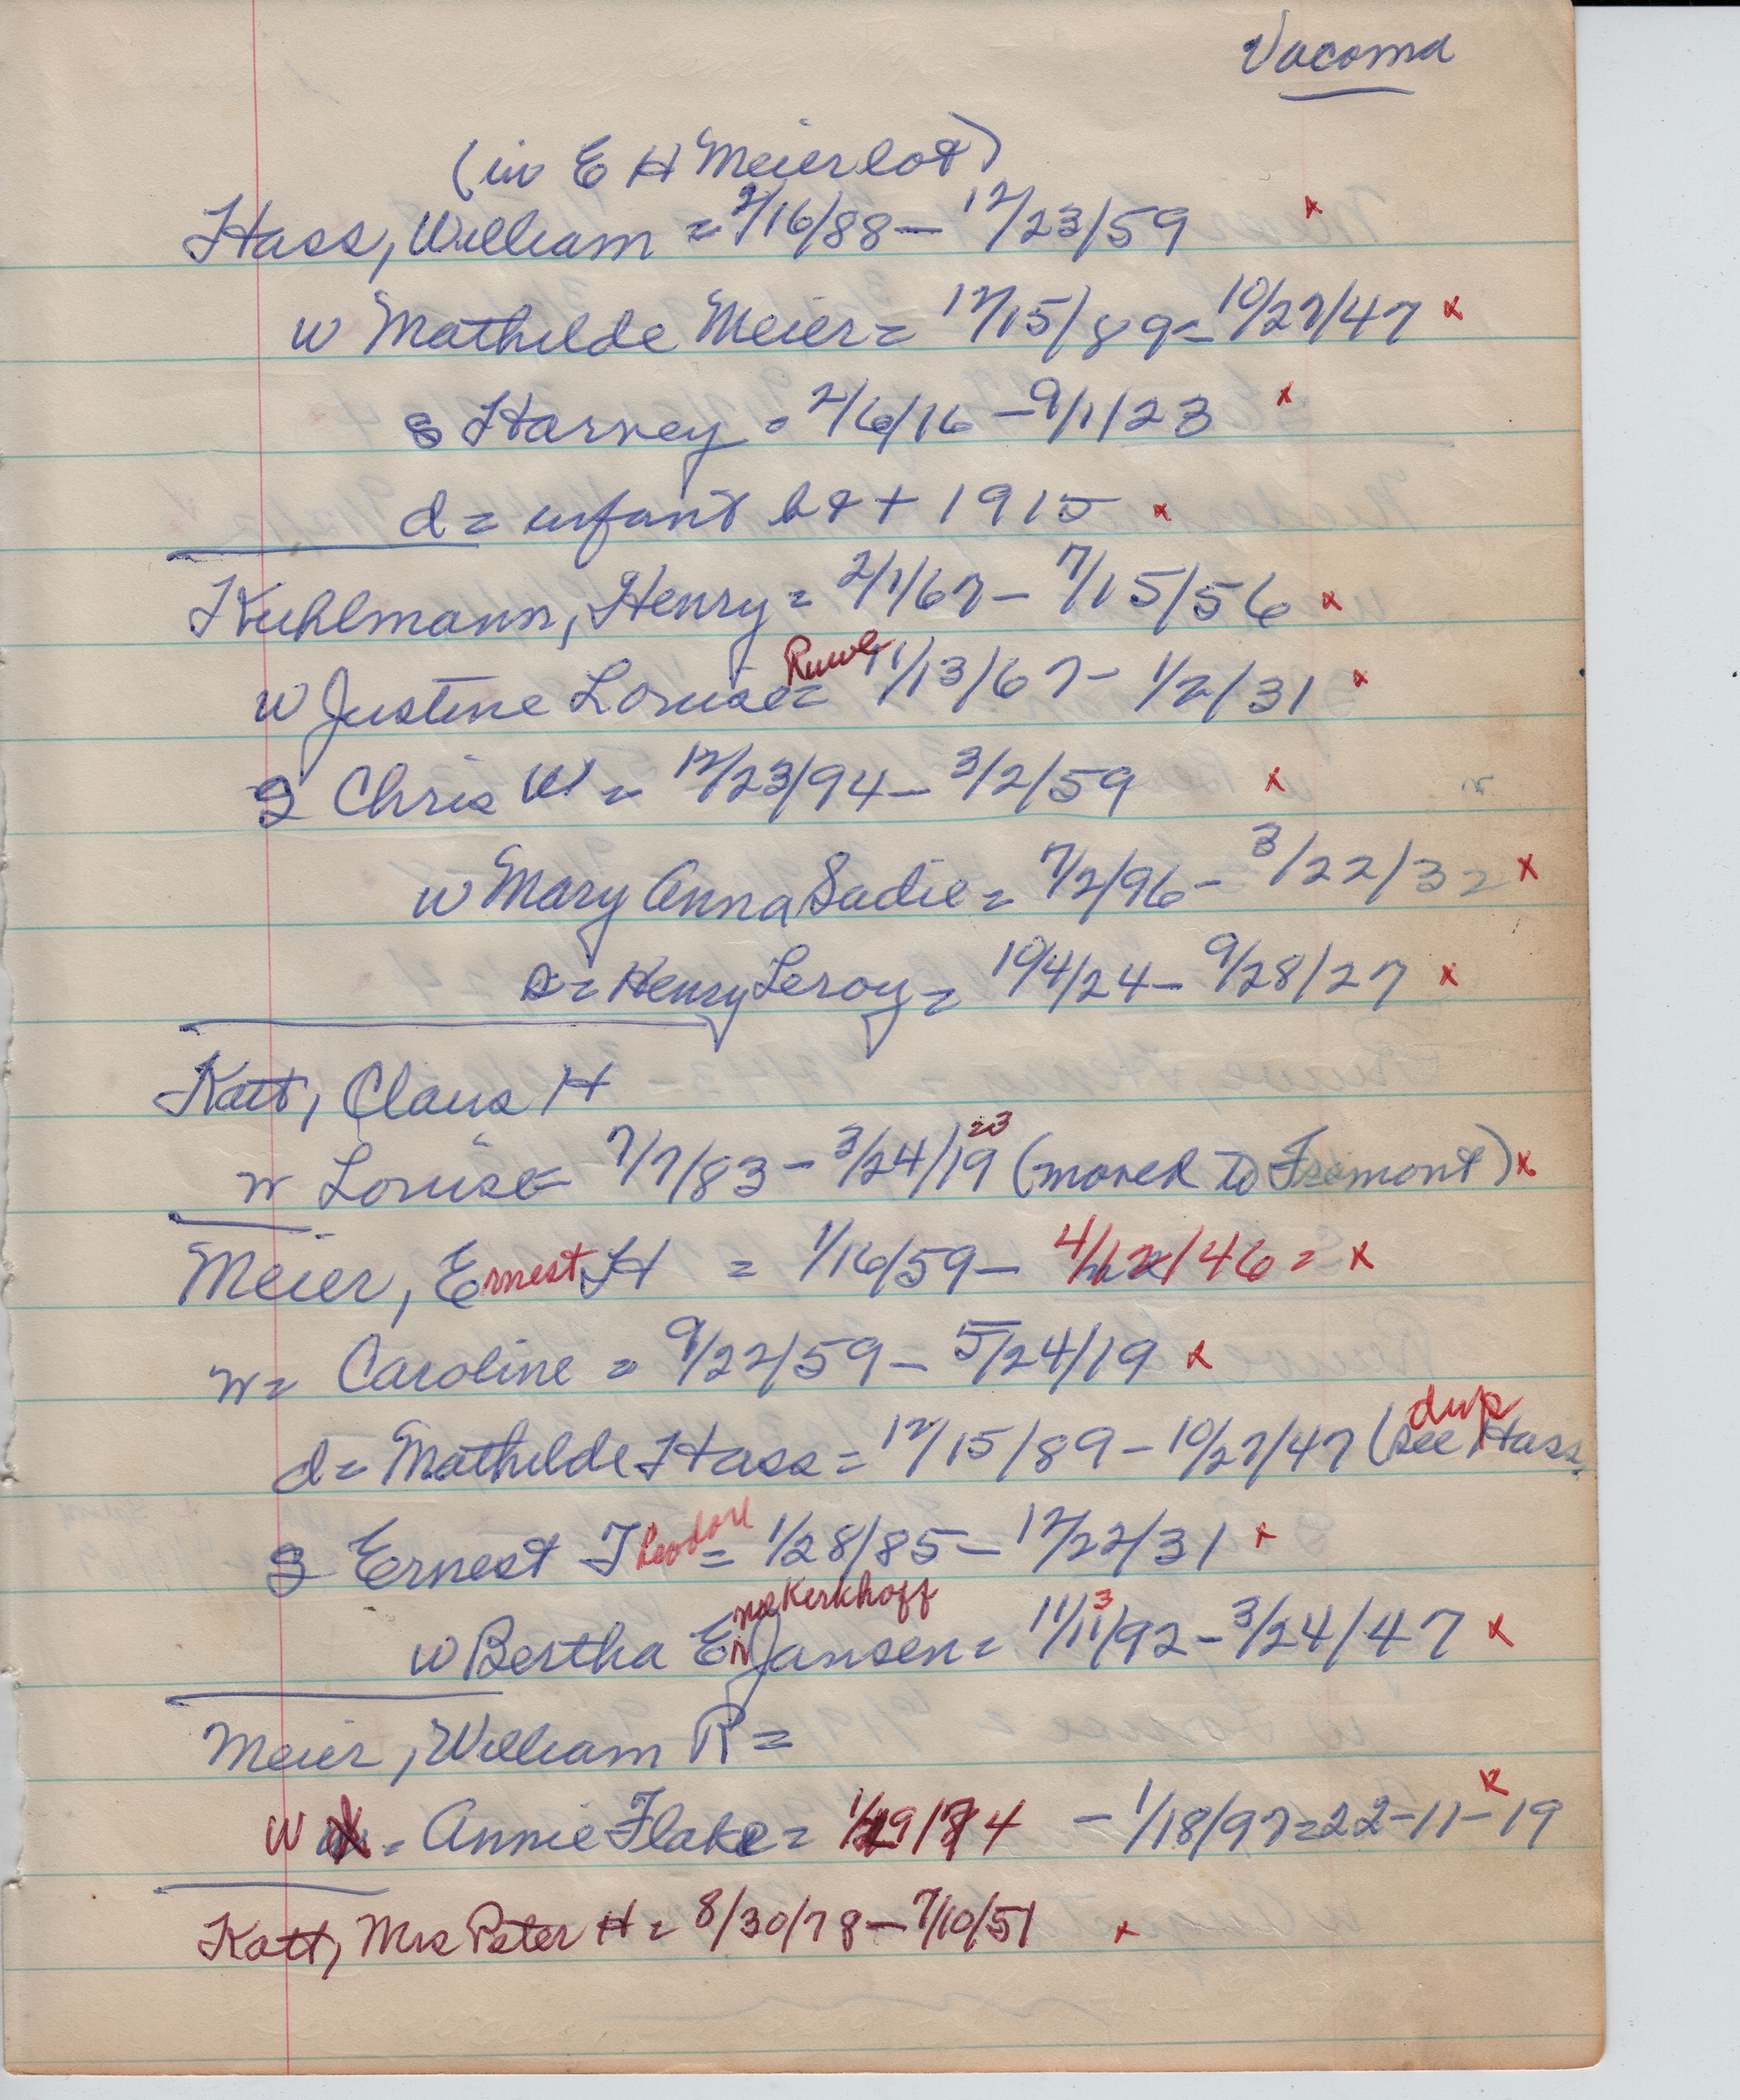 Vacoma
(in E H Meier lot)
Hass, William = 2/16/88 – 12/23/59 x
w Mathilde Meier = 12/15/89 = 10/27/47 x
s Harvey = 2/6/16 – 9/1/23 x
d = infant b & + 1915 x
Kuhlmann, Henry = 2/1/67 – 7/15/56 x
Ruwe
w Justine Louise = 11/13/67 – 1/2/31 x
S Chris W = 12/23/94 – 3/2/59 x
w Mary Anna Sadie = 7/2/96 – 3/22/32 x
s = Henry Leroy = 10/4/24 – 9/28/27 x
Katt, Claus H
23
w Louise = 7/7/83 – 3/24/19 (moved to Fremont) x
Meier, Ernest H = 1/16/59 – 4/12/46 = x
w = Caroline = 9/22/59 – 5/24/19 x
dup
d = Mathilde Hass = 12/15/89 – 10/27/47 (see Hass
S Ernest Theodore = 1/28/85 – 12/22/31 x
nee Kerkhoff 3
w Bertha E Jansen = 11/11/92 – 3/24/47 x
Meier, William R =
w = Annie Flake = 1/29/74 – 1/18/97 = 22-11-19 x
Katt, Mrs Peter H = 8/30/78 – 7/10/51 x